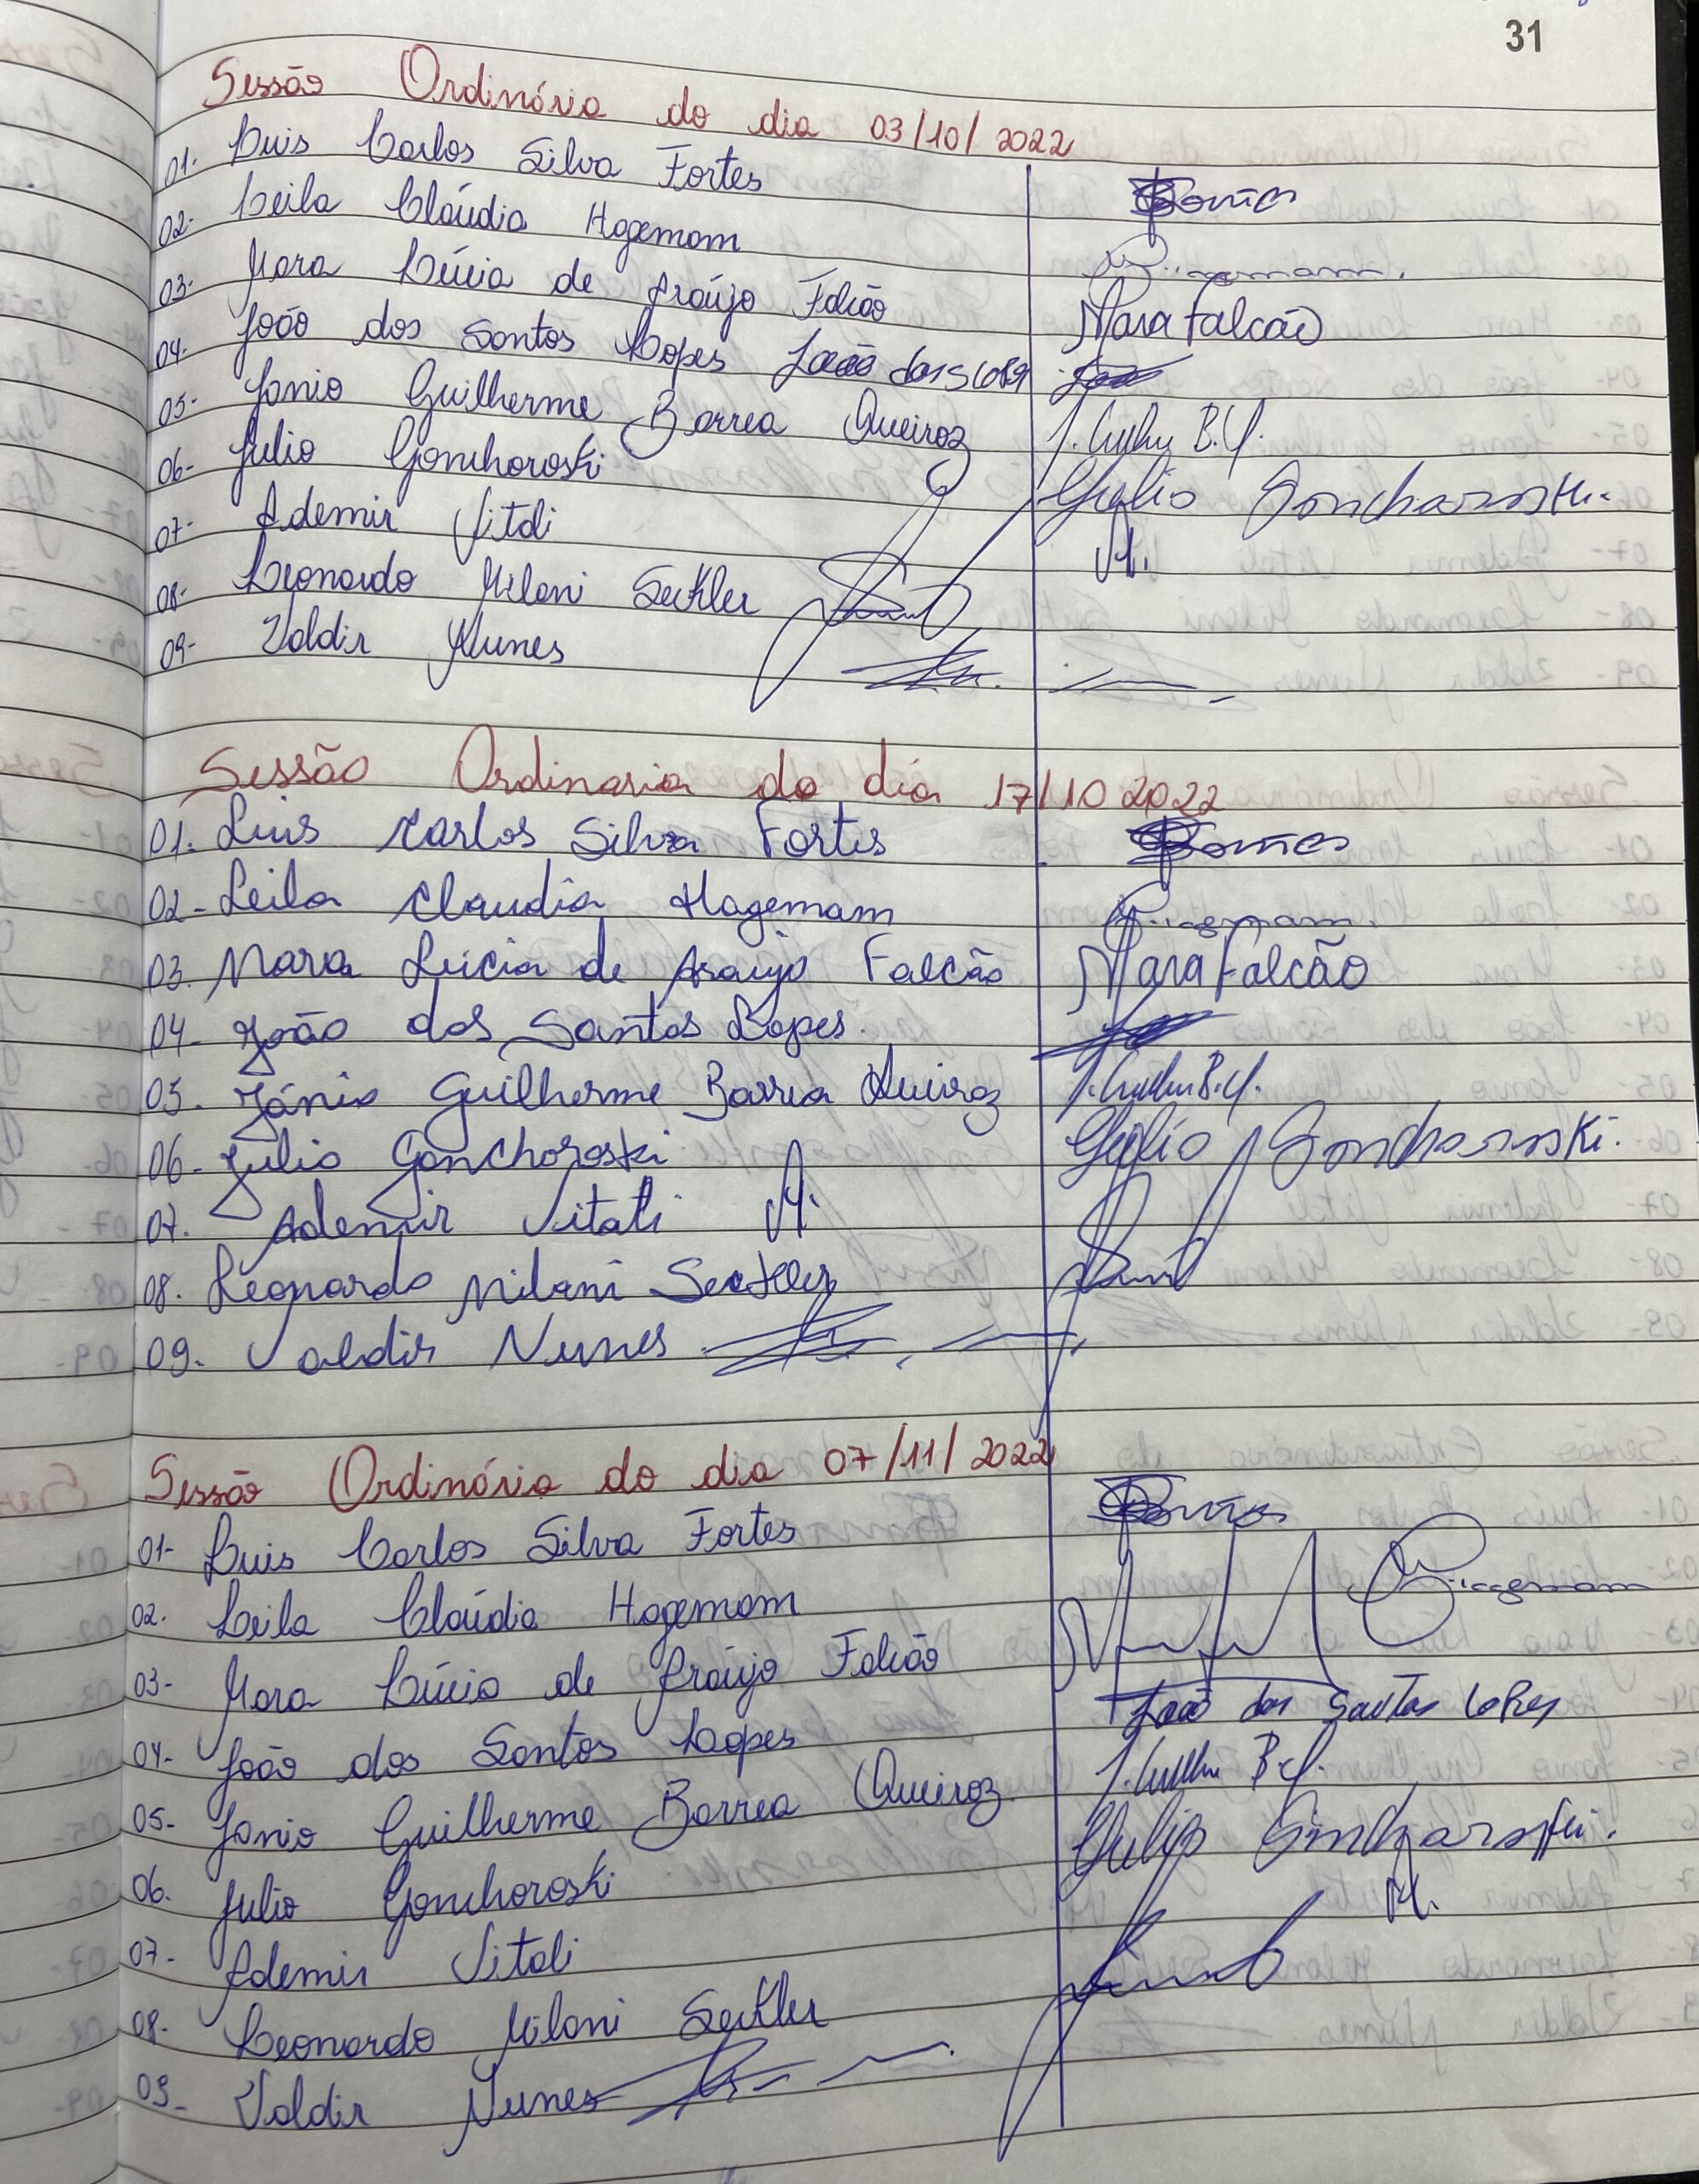 31
Sessão Ordinária do dia 03/10/2022
01. Luis Carlos Silva Fortes
02- Leila Cláudia Hagemam
03- Mara Lúcia de Araújo Falcão Mara Falcão
04- João dos Santos Lopes João dos
05- Janio Guilherme Barrea Queiroz B.Q.
06- Julio Gonchoroski Gulio Goncharoski.
07- Ademir Vitali
08- Leonardo Milani Seckler
09- Valdir Nunes
Sessão Ordinaria do dia 17/10 2022
01. Luis Carlos Silva Fortes
02- Leila Claudia Hagemam
03. Mara Lúcia de Araujo Falcão Mara Falcão
04- João dos Santos Lopes.
05. Jánio Guilherme Barrea Queiroz B.Q.
06- Julio Gonchoroski Gulio Gonchoroski.
07. Ademir Vitali
08. Leonardo Milani Seckler
09. Valdir Nunes
Sessão Ordinária do dia 07/11/2022
01- Luis Carlos Silva Fortes
02. Leila Cláudia Hagemam
03- Mara Lúcia de Araújo Falcão
04- João dos Santos Lopes João dos Santos Lopes
05- Janio Guilherme Barrea Queiroz B.Q.
06. Julio Gonchoroski
07- Ademir Vitali
08- Leonardo Milani Seckler
09- Valdir Nunes